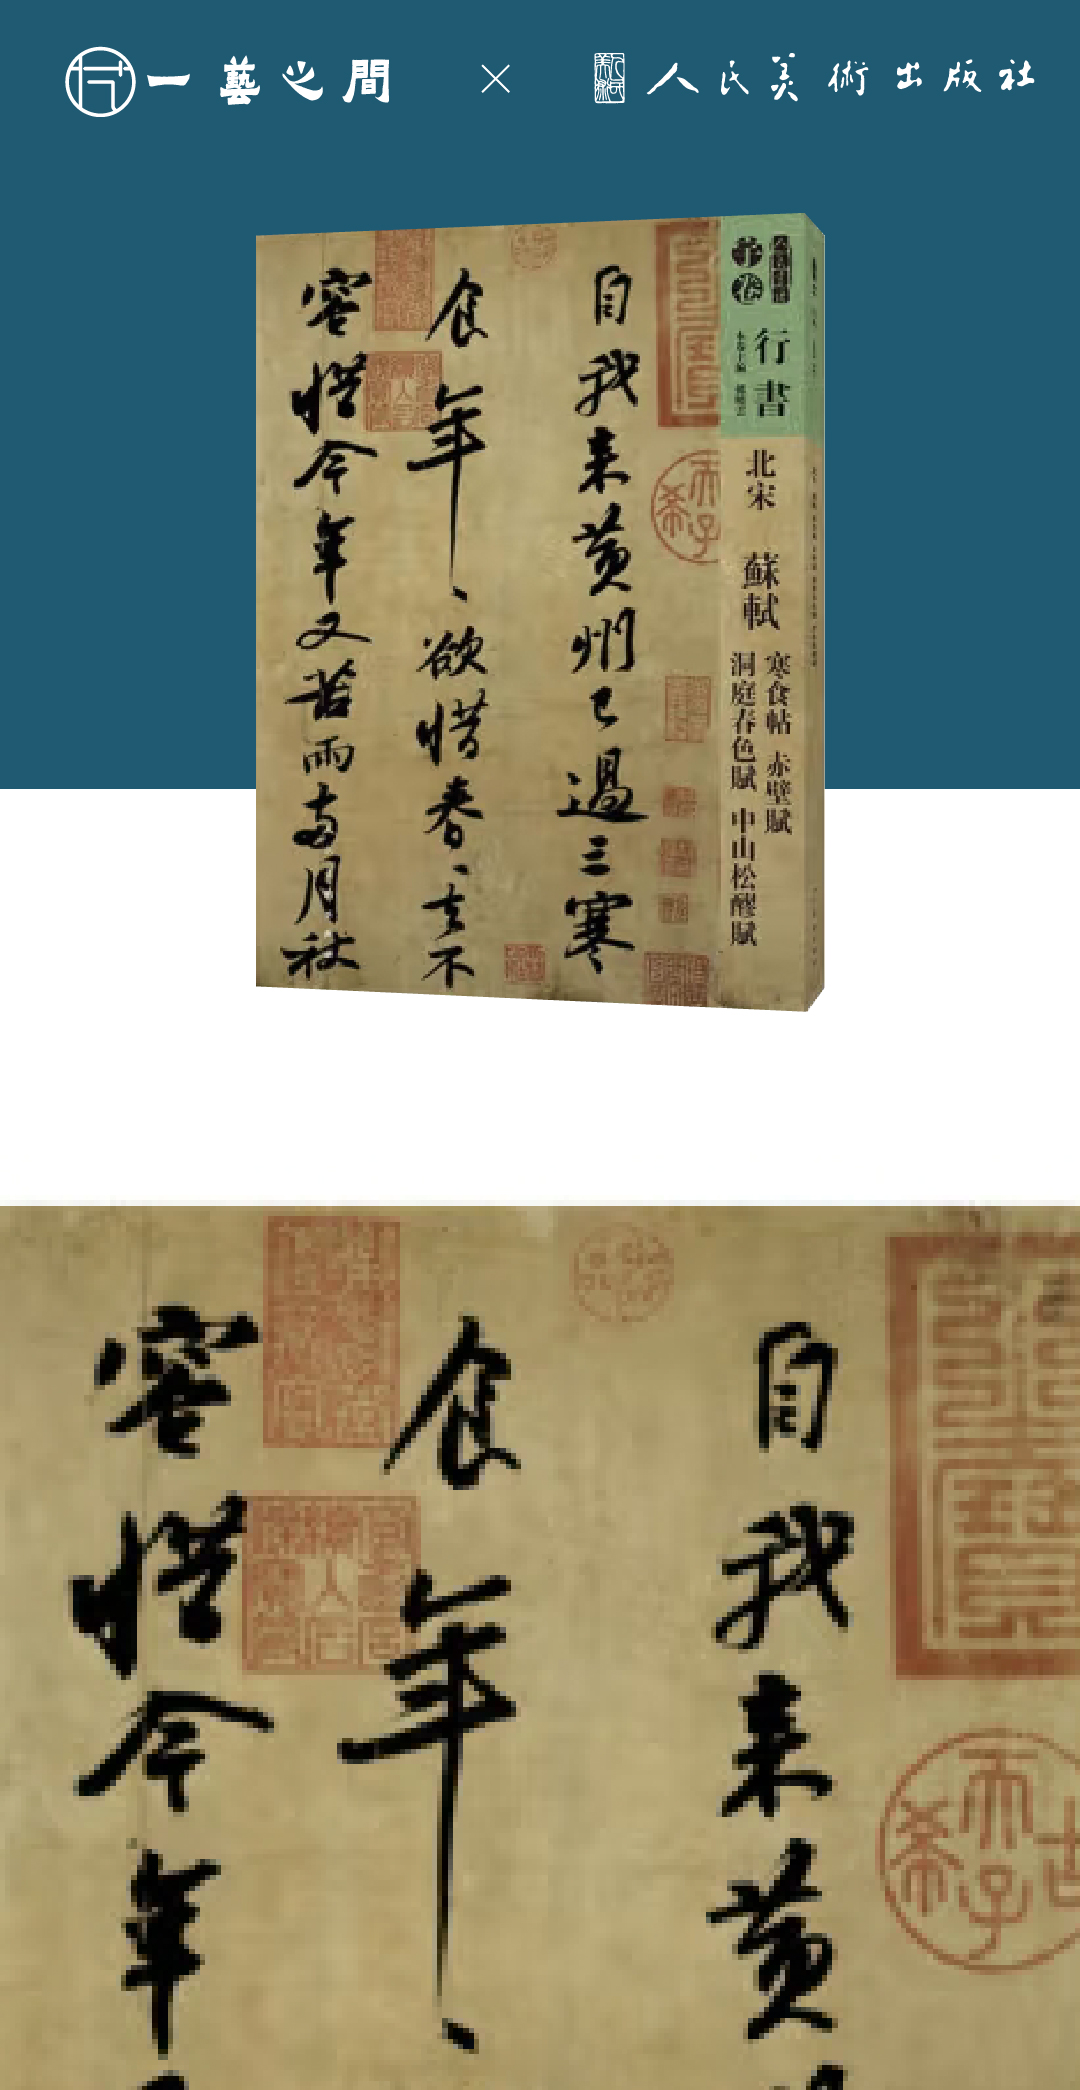 一藝之間 × 人民美術出版社
行書
本卷主編
北宋 蘇軾
寒食帖 赤壁賦
洞庭春色賦 中山松醪賦
天子
希
自我来黄州已過三寒
食年、欲惜春、去不
容惜今年又苦雨兩月秋
古
天子
希
自我来黄
食年、
容惜今年